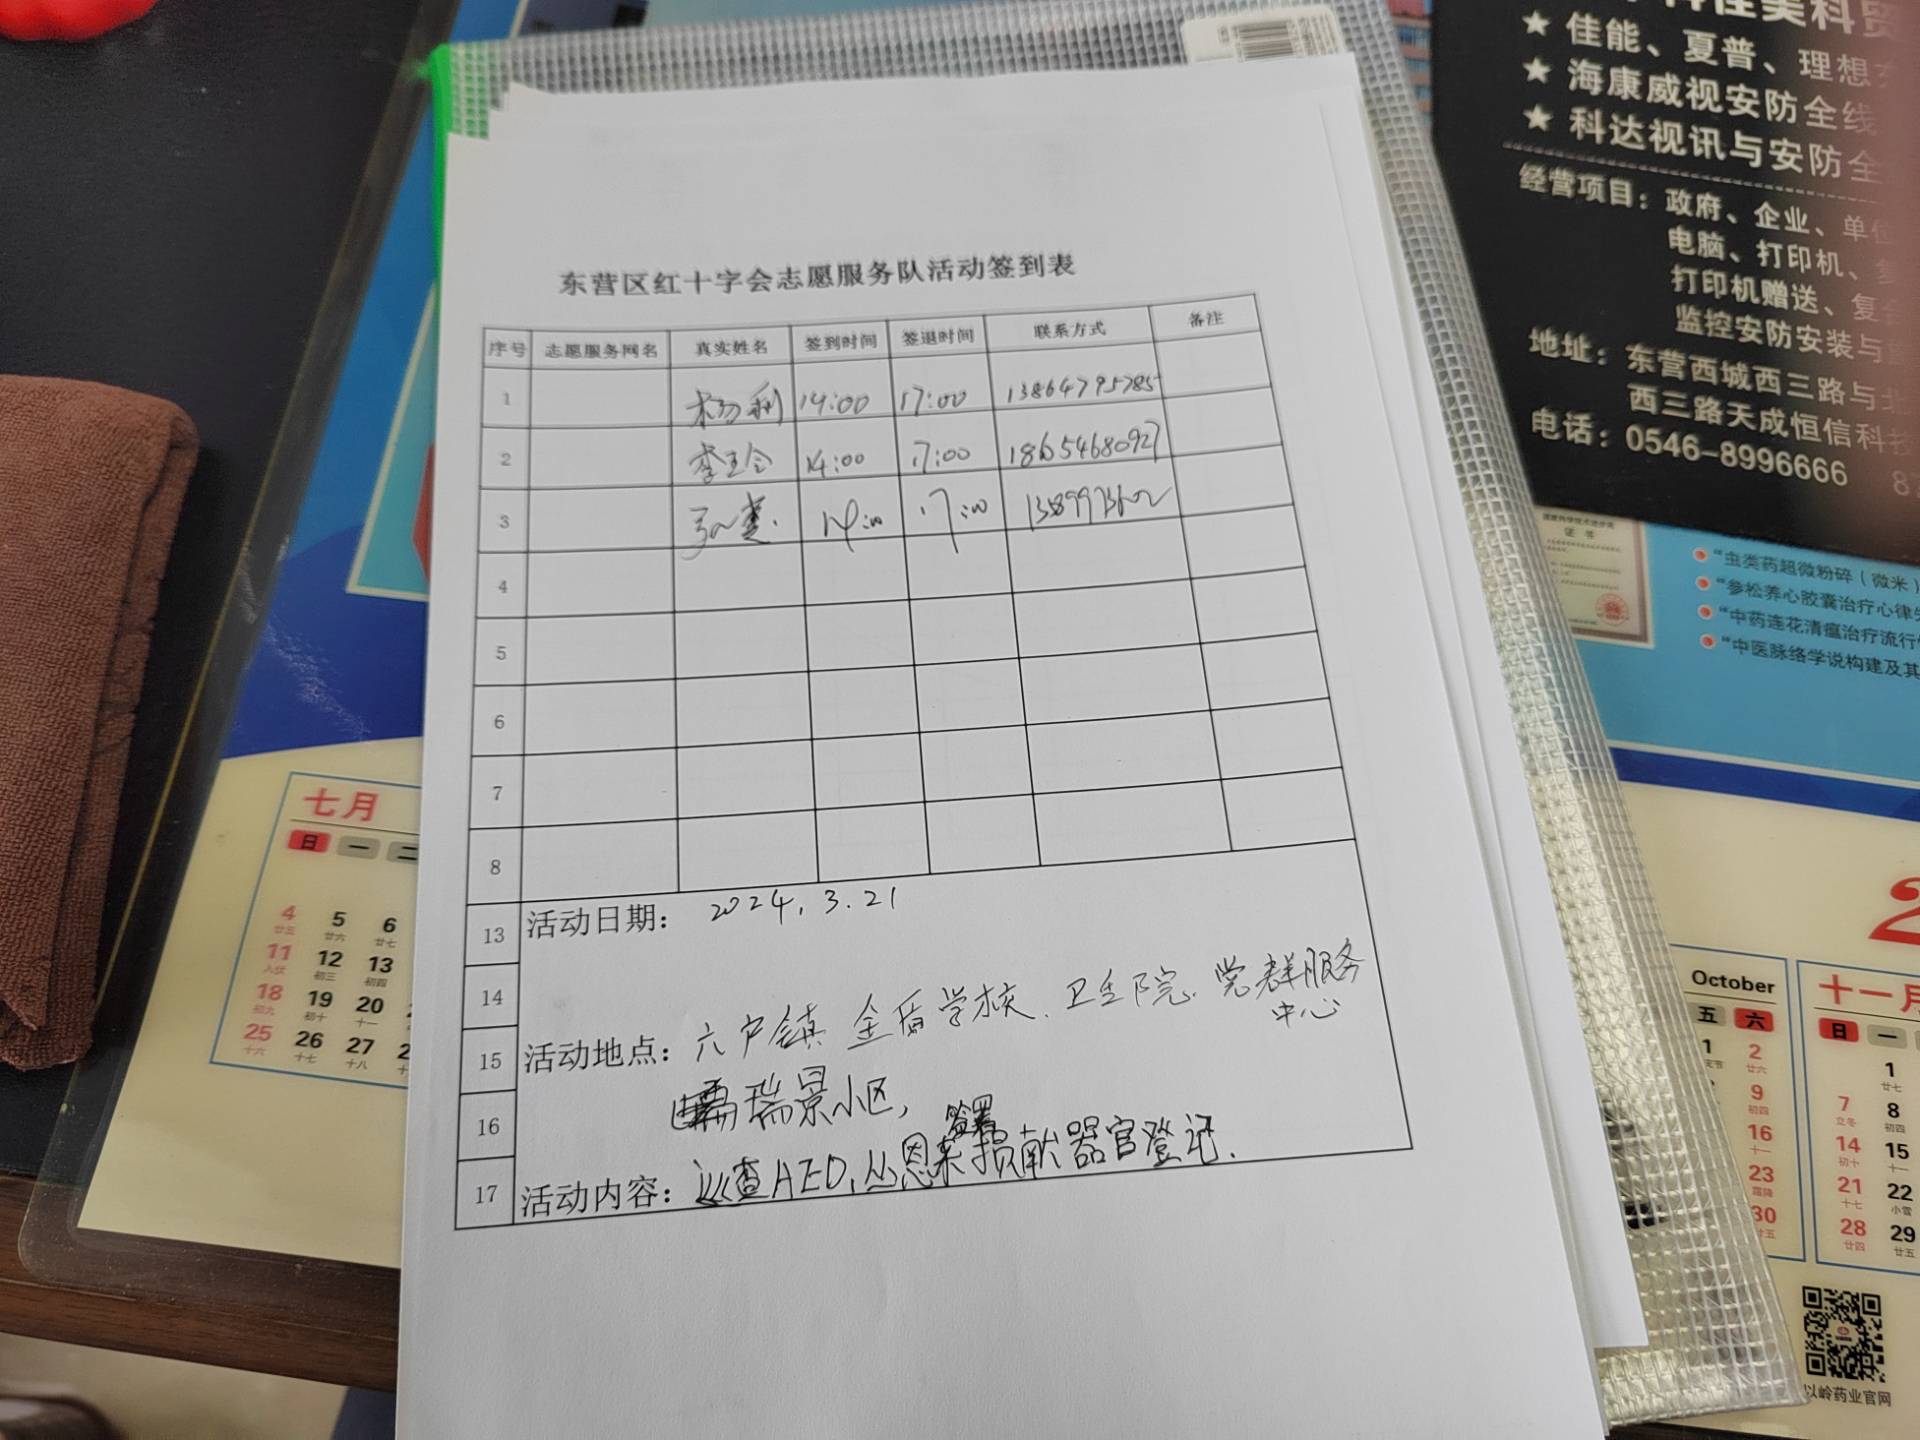 东营区红十字会志愿服务队活动签到表
序号 志愿服务网名 真实姓名 签到时间 签退时间 联系方式 备注
1 杨利 14:00 17:00 13864795785
2 14:00 17:00 18654680927
3 14:00 17:00
4
5
6
7
8
13 活动日期: 2024.3.21
14
15 活动地点: 六户镇 金盾学校、卫生院、党群服务
中心
16 瑞景小区,
签署
17 活动内容: 巡查AED,丛恩来捐献器官登记.
★ 佳能、夏普、理想
★ 海康威视安防全线
★ 科达视讯与安防全
经营项目: 政府、企业、单位
电脑、打印机、复
打印机赠送、复合
监控安防安装与
地址: 东营西城西三路与北
西三路天成恒信科技
电话: 0546-8996666 87
证书
“虫类药超微粉碎(微米)
“参松养心胶囊治疗心律失
“中药连花清瘟治疗流行性
“中医脉络学说构建及其
七月
日 一 二
4 5 6
廿三 廿六 廿七
11 12 13
入伏 初三 初四
18 19 20
初九 初十 十一
25 26 27 2
十六 十七 十八
2
October
五 六
1 2
廿六
9
初四
16
十一
23
霜降
30
廿五
十一月
日 一
1
廿七
7 8
立冬 初四
14 15
初十 十一
21 22
十七 小雪
28 29
廿四 廿五
以岭药业官网